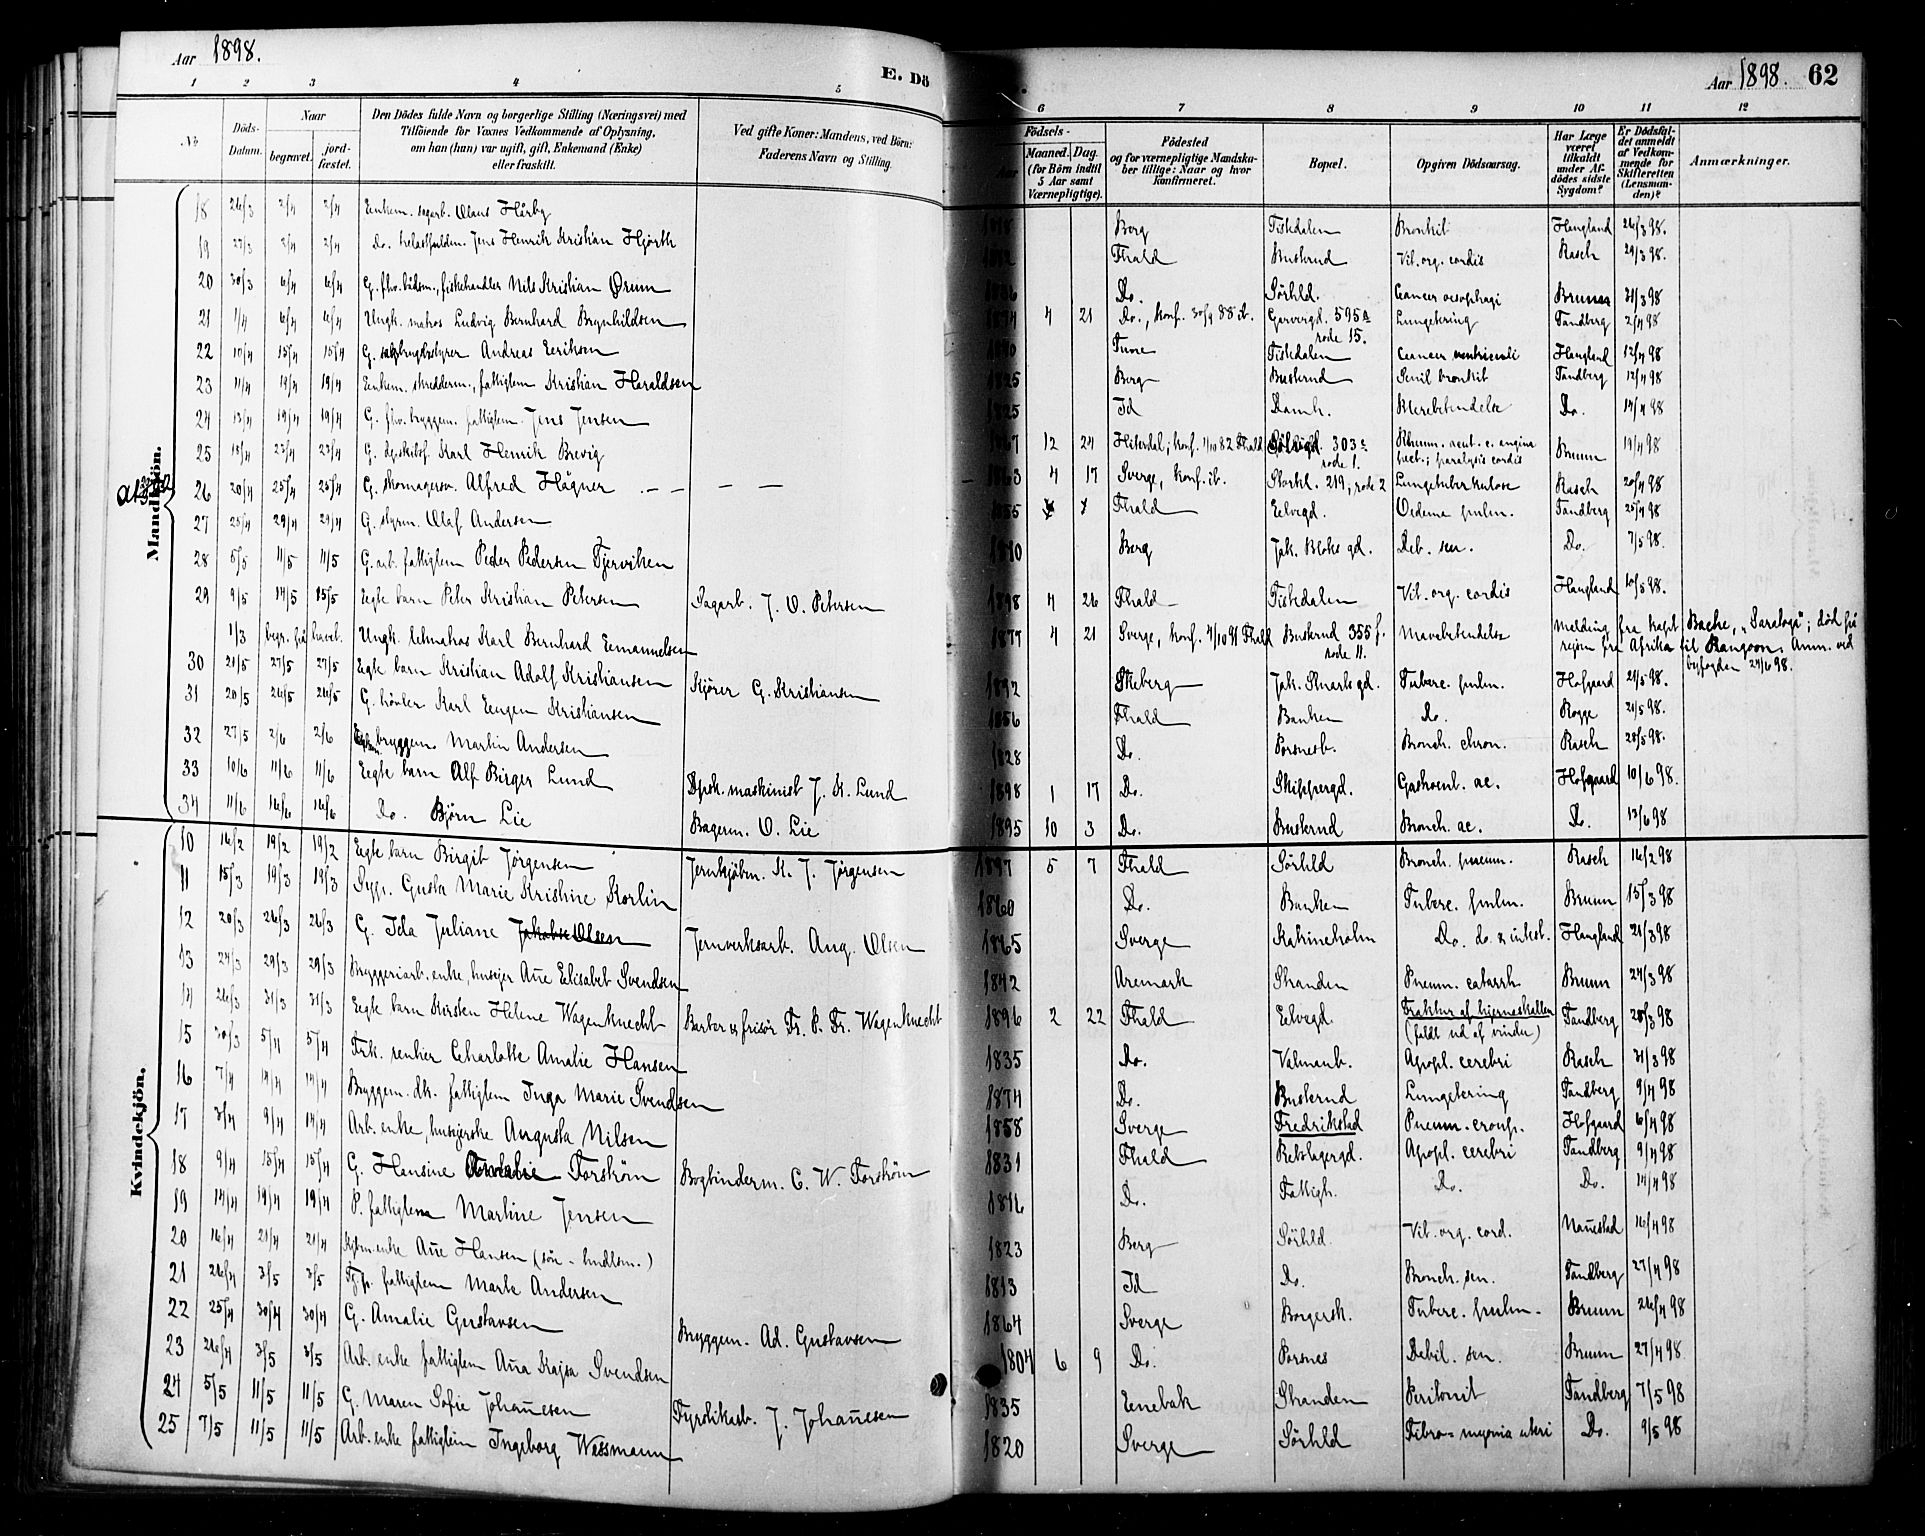 Aar 1898.
E. Dö
1 2 3 4 5
No.
Döds-Datum.
Naar
begravet.
jord-fæstet.
Den Dödes fulde Navn og borgerlige Stilling (Næringsvei) med
Tilföiende for Voxnes Vedkommende af Oplysning,
om han (hun) var ugift, gift, Enkemand (Enke)
eller fraskilt.
Ved gifte Koner: Mandens, ved Börn:
Faderens Navn og Stilling.
Aar 1898. 62
6 7 8 9 10 11 12
Födsels-
Aar
Maaned. Dag.
(for Börn indtil
5 Aar samt
Værnepligtige).
Födested
og for værnepligtige Mandska-
ber tillige: Naar og hvor
konfirmeret.
Bopæl.
Opgiven Dödsaarsag.
Har Læge
været
tilkaldt
under Af-
dödes sidste
Sygdom?
Er Dödsfal-
det anmeldt
af Vedkom-
mende for
Skifteretten
(Lensman-
den)?
Anmærkninger.
Mandkjön.
18 26/3 2/4 2/4 Enkem. sagarb. Olaus Hårby Berg Tistedalen Bronkit Haugland 26/3 98.
19 27/3 2/4 2/4 Do. Jens Henrik Kristian Hjorth Fhald Buskrud Vit. org. cordis Rasch 29/3 98.
20 30/3 6/4 6/4 G. fhv. bådsm., fiskehandler Nils Kristian Ørum 1836 Do. Sörhld. Cancer oesophagi Bruun 31/3 98
21 1/4 6/4 6/4 Ungk. matros Ludvig Bernhard Brynhildsen 1874 4 21 Do., konf. 30/9 88 ib. Garvergd. 595a rode 15. Lungetæring Tandberg 2/4 98
22 10/4 15/4 15/4 G. Andreas Eriksen Tune Tistedalen Cancer ventriculi Haugland 12/4 98
23 11/4 19/4 19/4 Enkem. skrædderm., fattiglem Kristian Haraldsen 1825 Berg Buskrud Senil bronkit Tandberg 12/4 98
24 13/4 19/4 19/4 G. fhv. bryggem. fattiglem Jens Jensen 1825 Id Damh. Blærebetændelse Do. 14/4 98
25 18/4 23/4 23/4 G. Karl Henrik Brevig 1867 12 24 Hiterdal; konf. 1/10 82 Fhald Sølvgd. 303a rode 1. Rheum. acut. c. angina pect.; paralysis cordis Bruun 19/4 98
26 20/4 25/4 25/4 G. skomagersv. Alfred Högner 1863 4 17 Sverge, konf. ib. Storkl. 219, rode 2 Lungetuberkulose Rasch 20/4 98
27 25/4 29/4 29/4 G. styrm. Olaf Andersen 1855 7 Fhald Elvegd. Oedema pulm. Tandberg 25/4 98
28 5/5 11/5 11/5 G. arb. fattiglem Peder Pedersen Tjerviken 1810 Berg Jak. Bloks gd. Deb. sen. Do. 7/5 98.
29 9/5 14/5 15/5 Egte barn Peter Kristian Petersen Sagarb. J. O. Petersen 1898 4 26 Fhald Tistedalen Vit. org. cordis Haugland 10/5 98.
1/3 begr. på havet. Ungk. letmatros Karl Bernhard Emanuelsen 1877 4 21 Sverge, konf. 4/10 91 Fhald Buskrud 355 f. rode 11. Mavebetændelse Melding fra kapt. Bache, "Saratoga"; död på rejsen fra Afrika til Rangoon. Anm. ved byfogden 24/6 98.
30 21/5 27/5 27/5 Egte barn Kristian Adolf Kristiansen Kjörer G. Kristiansen 1892 Skeberg Jak. Starks gd. Tuberc. pulm. Hofgaard 21/5 98.
31 20/5 26/5 26/5 G. Karl Eugen Kristiansen 1856 Fhald Banken Do. Rogge 21/5 98.
32 27/5 2/6 2/6 bryggem. Martin Andersen 1828 Do. Porsnesb. Bronch. chron. Rasch 28/5 98.
33 10/6 11/6 11/6 Egte barn Alf Birger Lund Dpsk. maskinist J. K. Lund 1898 1 17 Do. Skippergd. Gastroent. ac. Hofgaard 10/6 98.
34 11/6 16/6 16/6 Do. Björn Lie Bagerm. O. Lie 1895 10 3 Do. Buskrud Bronch. ac. Do. 13/6 98
Kvindekjön.
10 16/2 19/2 19/2 Egte barn Birgit Jörgensen Jernkjöbm. K. J. Jörgensen 1897 5 7 Fhald Sörhld Bronch. pneum. Rasch 16/2 98
11 15/3 19/3 19/3 Sypi. Gusta Marie Kristine Korlin 1860 Do. Banken Tuberc. pulm. Bruun 15/3 98
12 20/3 26/3 26/3 G. Ida Juliane Olsen Jernverksarb. Aug. Olsen 1865 Sverge Katrineholm Do. do. & intest. Haugland 21/3 98
13 24/3 29/3 29/3 Bryggeriarb. enke, husejer Añe Elisabet Svendsen 1842 Aremark Stranden Pneum. catarrh. Bruun 24/3 98
14 26/3 31/3 31/3 Egte barn Kirsten Helene Wagenknecht Barber & frisör Fr. P. Fr. Wagenknecht 1896 2 22 Fhald Elvegd. Fraktur af hjerneskallen (faldt ud af vindu) Tandberg 28/3 98
15 30/3 5/4 5/4 Frk. rentier Charlotte Amalie Hansen 1835 Do. Valmanb. Apopl. cerebri Rasch 31/3 98
16 7/4 14/4 14/4 Bryggem. dt. fattiglem Inga Marie Svendsen 1874 Do. Buskrud Lungetæring Tandberg 9/4 98
17 3/4 9/4 14/4 Arb. enke, husejerske Augusta Nilsen 1858 Sverge Fredrikstad Pneum. croup. Hofgaard 6/4 98
18 9/4 15/4 15/4 G. Hansine Amalie Forström Bogbinderm. C. W. Forström 1831 Fhald Rebslagergd. Apopl. cerebri Tandberg 9/4 98
19 14/4 19/4 19/4 P. fattiglem Martine Jensen 1816 Do. Fattigh. Do. Do. 14/4 98
20 16/4 21/4 21/4 Kjöbm. enke Añe Hansen (sön - hndlsm.) 1823 Berg Sörhld. Vit. org. cord. Nañestad 16/4 98
21 26/4 3/5 3/5 Tjp. fattiglem Marte Andersen 1813 Id Do. Bronch. sen. Tandberg 27/4 98
22 25/4 30/4 30/4 G. Amalie Gustavsen Bryggem. Ad. Gustavsen 1864 Sverge Borgersk. Tuberc. pulm. Bruun 26/4 98
23 26/4 3/5 3/5 Arb. enke fattiglem Aña Kajsa Svendsen 1804 6 9 Do. Porsnes Debil. sen. Bruun 27/4 98
24 5/5 11/5 11/5 G. Maren Sofie Johañesen Fyrstikarb. J. Johañesen 1835 Enebak Stranden Peritonit Tandberg 7/5 98
25 7/5 11/5 11/5 Arb. enke fattiglem Ingeborg Wessmann 1820 Sverge Sörhld Fibro-myoma uteri Do. 9/5 98